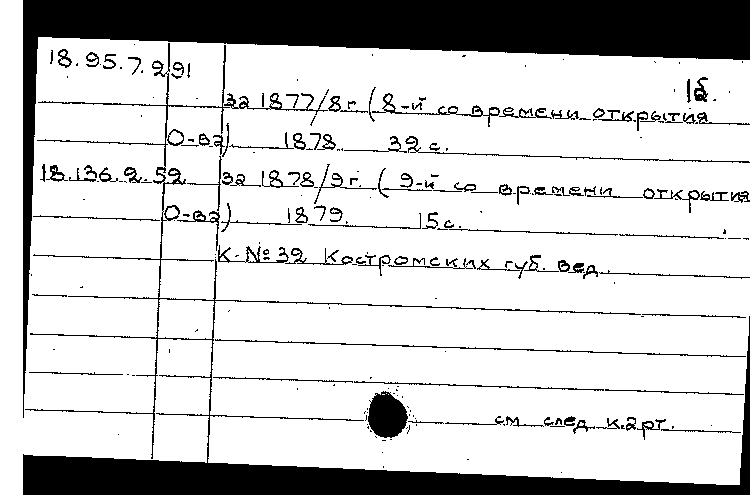 18.95.7.291
1б.
за 1877/8 г. (8-й со времени открытия
О-ва) 1878. 32 с.
18.136.2.52 за 1878/9 г. (9-й со времени открытия
О-ва) 1879. 15 с.
К № 32 Костромских губ. вед.
см. след к.арт.